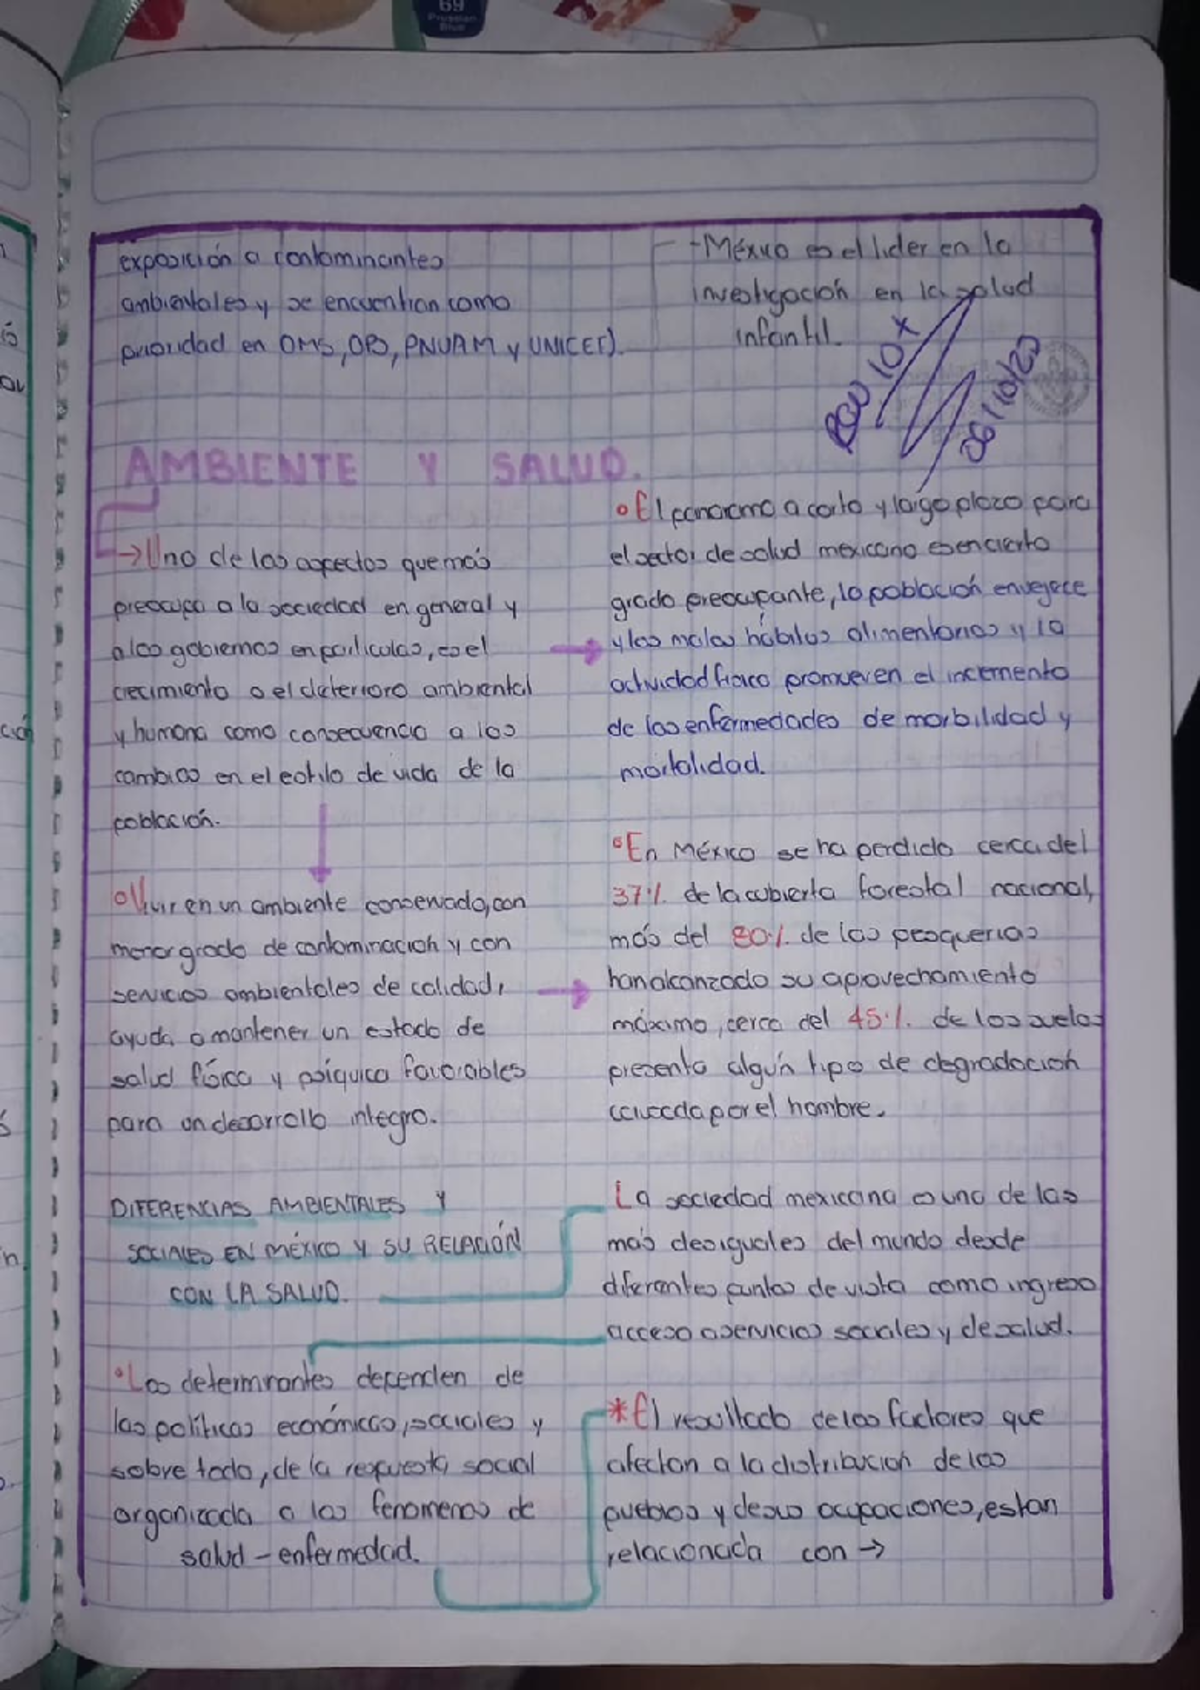 69
Prussian
Blue
exposición a contaminantes
ambientales y se encuentran como
prioridad en OMS, OPS, PNUAM y UNICEF).
- México es el lider en la
investigación en la salud
infantil.
10 x
26/10/23
AMBIENTE Y SALUD.
→ Uno de los aspectos que más
preocupa a la sociedad en general y
a los gobiernos en particulas, es el
crecimiento o el deterioro ambiental
y humana como consecuencia a los
cambios en el estilo de vida de la
población.
°Vivir en un ambiente conservado, con
menor grado de contaminación y con
servicios ambientales de calidad,
ayuda a mantener un estado de
salud física y psíquica favorables
para un desarrollo integro.
°El panorama a corto y largo plazo para
el sector de salud mexicano es en cierto
grado preocupante, la población envejece
y los malos hábitos alimentarios y la
actividad fisica promueven el incremento
de las enfermedades de morbilidad y
mortalidad.
°En México se ha perdido cerca del
37% de la cubierta forestal nacional,
más del 80% de las pesquerias
han alcanzado su aprovechamiento
máximo, cerca del 45% de los suelos
presenta algún tipo de degradación
causada por el hombre.
DIFERENCIAS AMBIENTALES Y
SOCIALES EN MÉXICO Y SU RELACIÓN
CON LA SALUD.
La sociedad mexicana es una de las
más desiguales del mundo desde
diferentes puntos de vista como ingreso
acceso a servicios sociales y de salud.
°Los determinantes dependen de
las políticas económicas, sociales y
sobre todo, de la respuesta social
organizada a los fenomenos de
salud - enfermedad.
*El resultado de los factores que
afectan a la distribución de los
pueblos y de sus ocupaciones, estan
relacionada con →